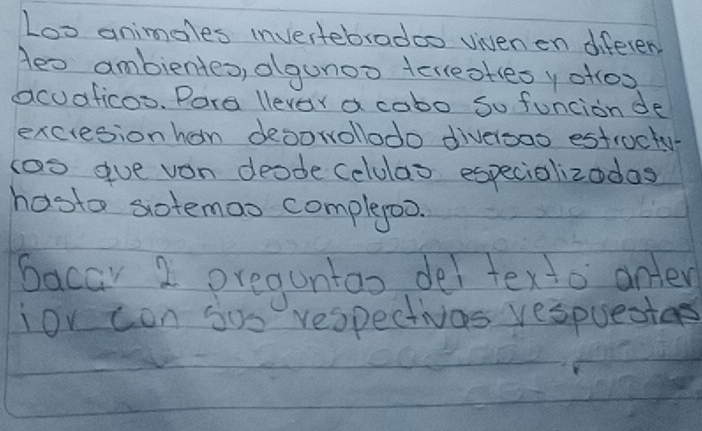 Los animales invertebrados viven en diferen
tes ambientes, algunos terrestres y otros
acuaticos. Para llevar a cabo su función de
excresion han desarrollado diversas estructu-
ras que van desde celulas especializadas
hasta sistemas complejos.
Sacar 2 preguntas del texto anter
ior con sus respectivas respuestas